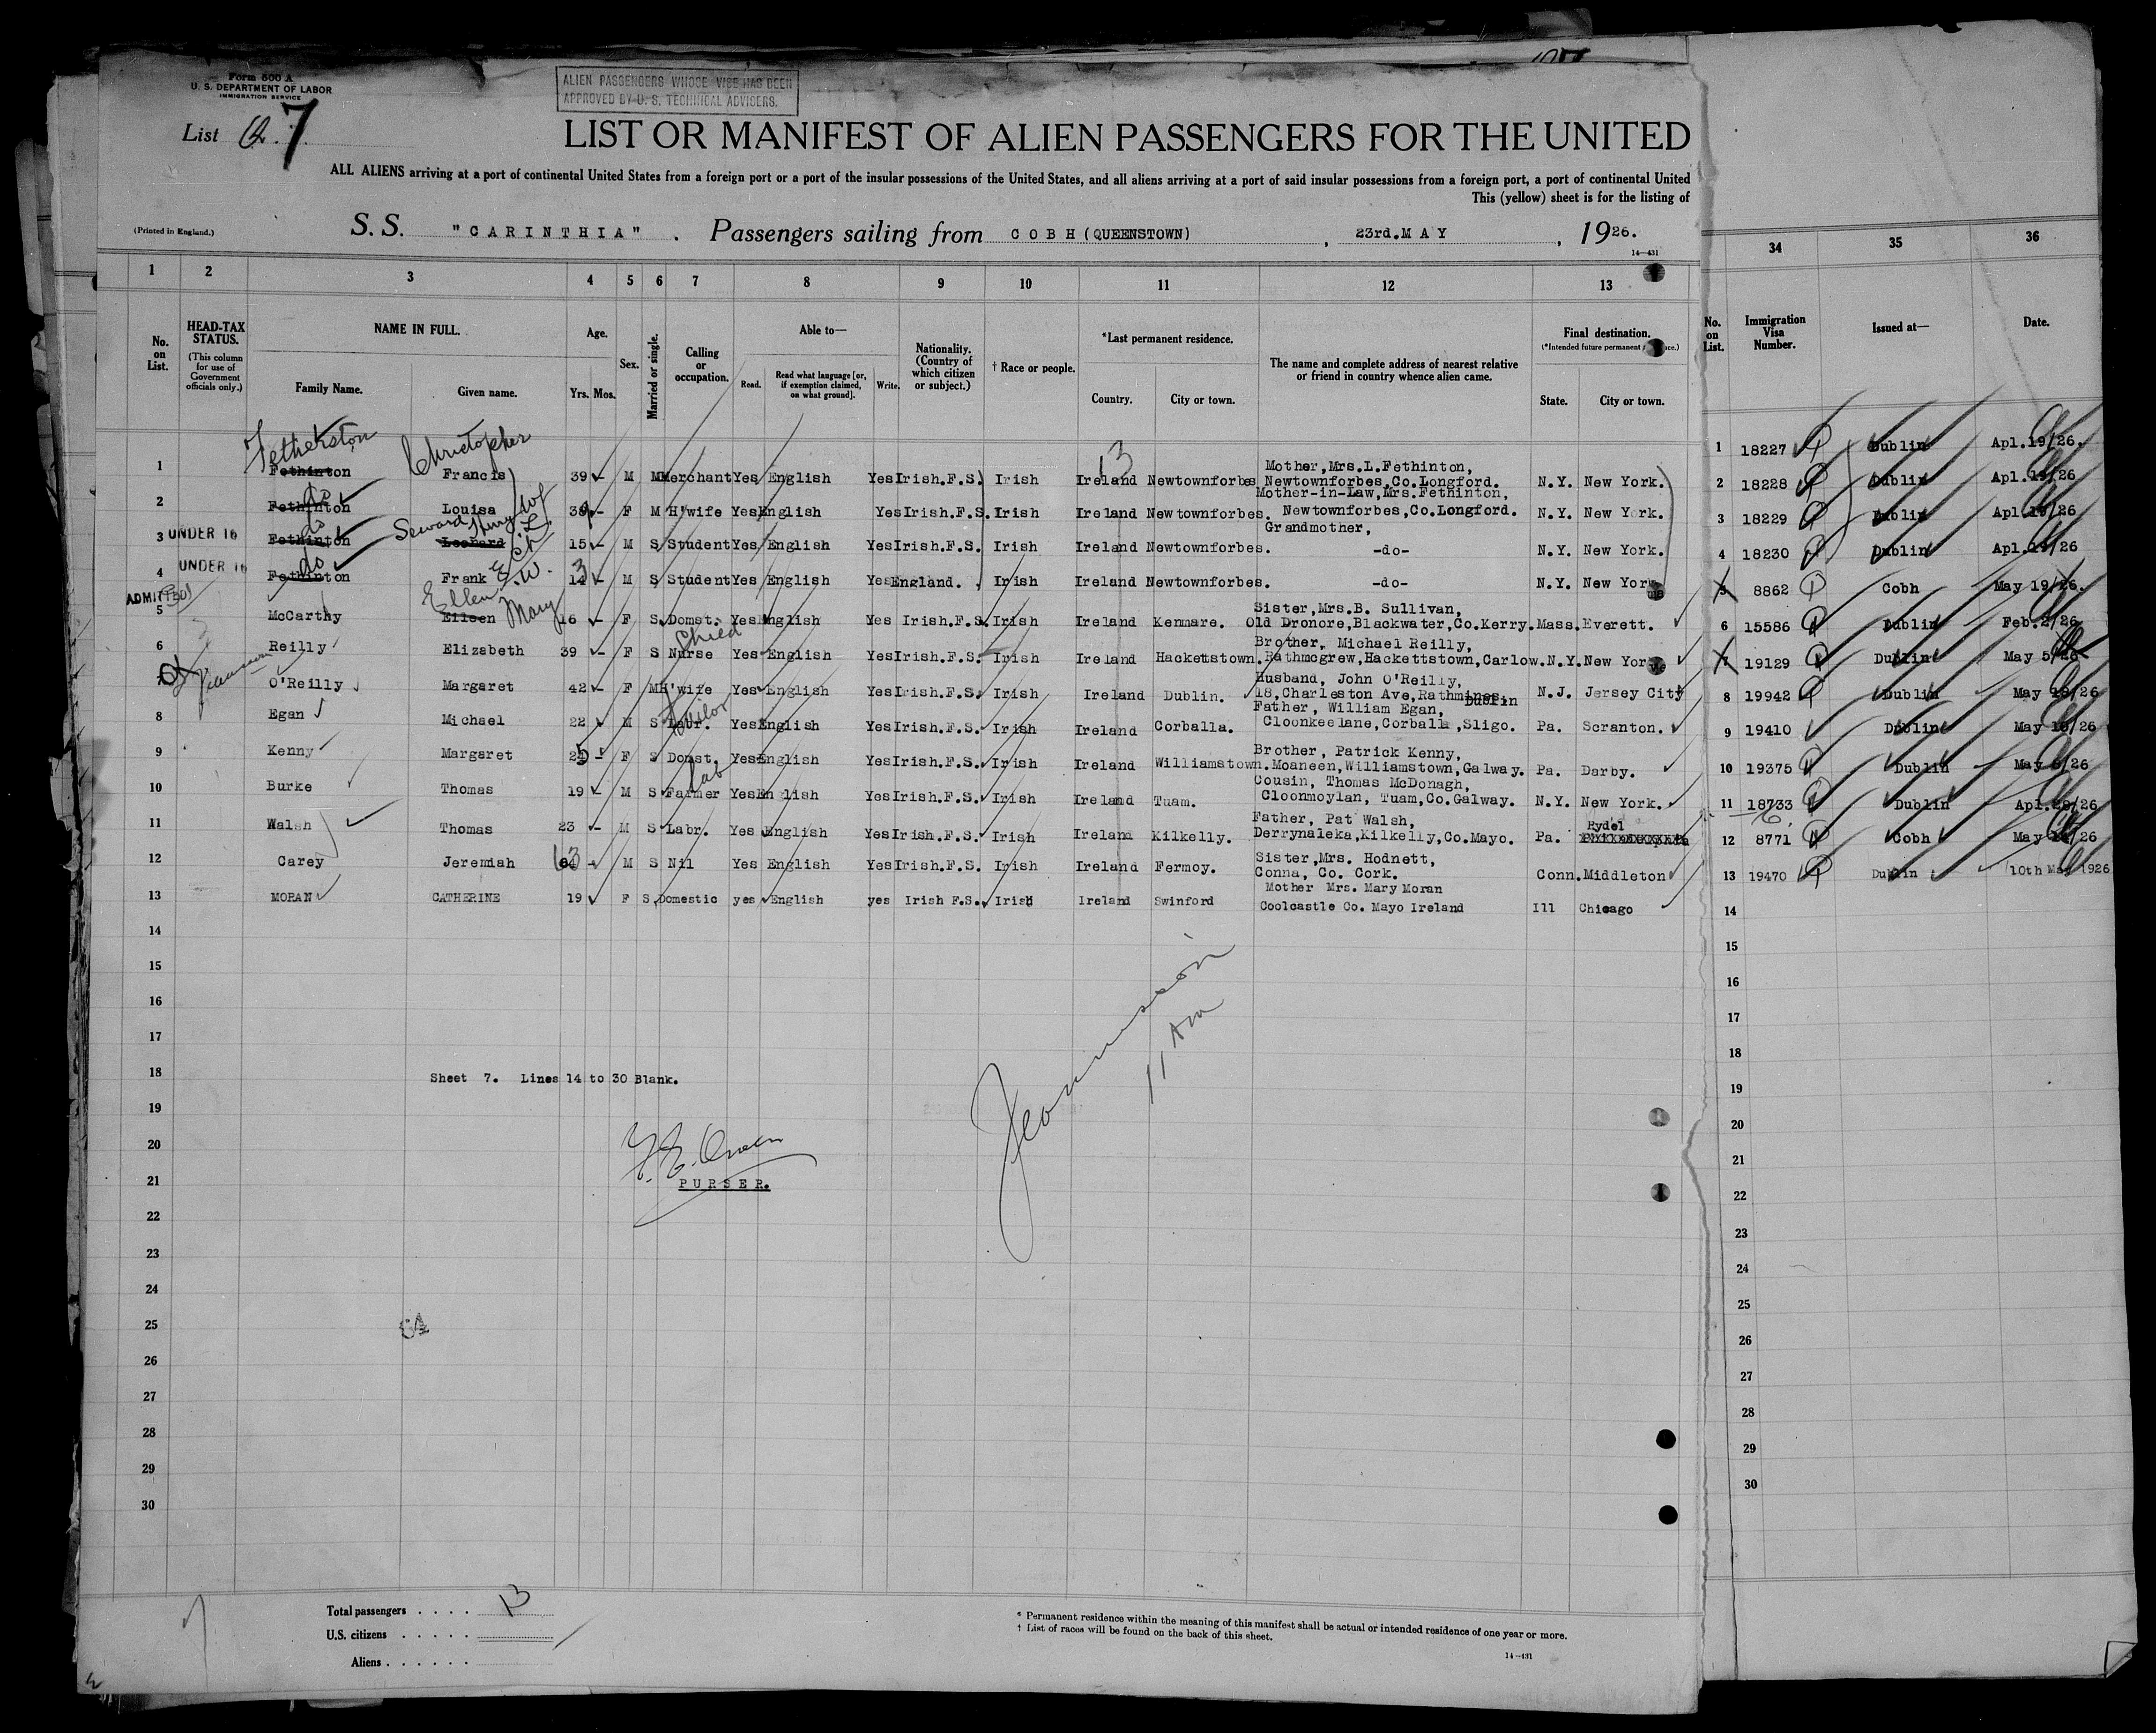 Form 500 A
U. S. DEPARTMENT OF LABOR
IMMIGRATION SERVICE
ALIEN PASSENGERS WHOSE VISE HAS BEEN
APPROVED BY U. S. TECHNICAL ADVISERS.
List 7
LIST OR MANIFEST OF ALIEN PASSENGERS FOR THE UNITED
ALL ALIENS arriving at a port of continental United States from a foreign port or a port of the insular possessions of the United States, and all aliens arriving at a port of said insular possessions from a foreign port, a port of continental United
This (yellow) sheet is for the listing of
(Printed in England.)
S. S. "CARINTHIA" . Passengers sailing from COBH (QUEENSTOWN) , 23rd. MAY , 1926.
14—431
1 2 3 4 5 6 7 8 9 10 11 12 13 34 35 36
No. on List.
HEAD-TAX STATUS.
(This column for use of Government officials only.)
NAME IN FULL.
Family Name. Given name.
Age.
Yrs. Mos.
Sex.
Married or single.
Calling or occupation.
Able to—
Read. Read what language [or, if exemption claimed, on what ground]. Write.
Nationality. (Country of which citizen or subject.)
† Race or people.
*Last permanent residence.
Country. City or town.
The name and complete address of nearest relative or friend in country whence alien came.
Final destination.
(*Intended future permanent
State. City or town.
No. on List. Immigration Visa Number. Issued at— Date.
Fetherston Christopher
13
1 Fethinton Francis 39 - M M Merchant Yes English Yes Irish.F.S. Irish Ireland Newtownforbes Mother, Mrs. L. Fethinton, Newtownforbes, Co. Longford. N.Y. New York. 1 18227 Dublin Apl.19/26.
do
2 Fethinton Louisa F M H'wife Yes English Yes Irish.F.S. Irish Ireland Newtownforbes. Mother-in-Law, Mrs. Fethinton, Newtownforbes, Co. Longford. N.Y. New York. 2 18228 Dublin Apl.19/26
do Seward
3 UNDER 16 Fethinton Leonard 15 - M S Student Yes English Yes Irish.F.S. Irish Ireland Newtownforbes. Grandmother, -do- N.Y. New York. 3 18229 Dublin Apl.19/26
do
4 UNDER 16 Fethinton Frank E. W. 14 - M S Student Yes English Yes England. Irish Ireland Newtownforbes. -do- N.Y. New York 4 18230 Dublin Apl.19/26
ADMITTED
Ellen Mary
5 McCarthy Eileen 16 - F S Domst. Yes English Yes Irish.F.S. Irish Ireland Kenmare. Sister, Mrs. B. Sullivan, Old Dronore, Blackwater, Co. Kerry. Mass. Everett. 5 8862 Cobh May 19/26.
Child
6 Reilly Elizabeth 39 - F S Nurse Yes English Yes Irish.F.S. Irish Ireland Hackettstown. Brother, Michael Reilly, Rathmogrew, Hackettstown, Carlow. N.Y. New York 6 15586 Dublin Feb.2/26
O'Reilly Margaret 42 - F M H'wife Yes English Yes Irish.F.S. Irish Ireland Dublin. Husband, John O'Reilly, 18, Charleston Ave, Rathmines, Dublin N.J. Jersey City 7 19129 Dublin May 5/26
Tailor
8 Egan Michael 22 M S Labr. Yes English Yes Irish.F.S. Irish Ireland Corballa. Father, William Egan, Cloonkeelane, Corballa, Sligo. Pa. Scranton. 8 19942 Dublin May 18/26
9 Kenny Margaret 25 - F S Domst. Yes English Yes Irish.F.S. Irish Ireland Williamstown. Brother, Patrick Kenny, Moaneen, Williamstown, Galway. Pa. Darby. 9 19410 Dublin
Lab
10 Burke Thomas 19 - M S Farmer Yes English Yes Irish.F.S. Irish Ireland Tuam. Cousin, Thomas McDonagh, Cloonmoylan, Tuam, Co. Galway. N.Y. New York. 10 19375 Dublin
11 Walsh Thomas 23 - M S Labr. Yes English Yes Irish.F.S. Irish Ireland Kilkelly. Father, Pat Walsh, Derrynaleka, Kilkelly, Co. Mayo. Pa. Rydel 11 18733 Dublin Apl.28/26
12 Carey Jeremiah 63 M S Nil Yes English Yes Irish.F.S. Irish Ireland Fermoy. Sister, Mrs. Hodnett, Conna, Co. Cork. Conn. Middleton 12 8771 Cobh
13 MORAN CATHERINE 19 F S Domestic yes English yes Irish F.S. Irish Ireland Swinford Mother Mrs. Mary Moran Coolcastle Co. Mayo Ireland Ill Chicago 13 19470 Dublin 10th May 1926
14 14
15 15
16 16
17 17
18 Sheet 7. Lines 14 to 30 Blank. 18
19 19
20 20
21 PURSER. 21
22 22
23 23
24 24
25 25
26 26
27 27
28 28
29 29
30 30
11 Am
Total passengers . . . . 13
U.S. citizens . . . . .
Aliens . . . . . .
* Permanent residence within the meaning of this manifest shall be actual or intended residence of one year or more.
† List of races will be found on the back of this sheet.
14—431